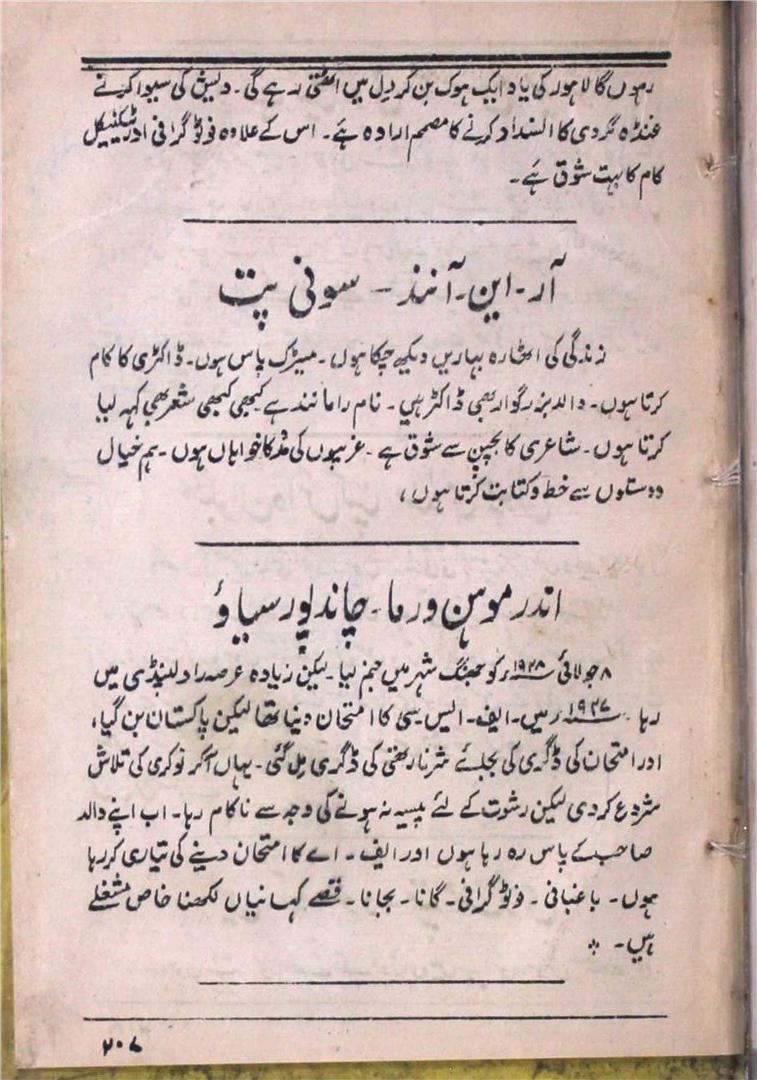 رہوں گا لاہور کی یاد ایک ہوک بن کر دل میں اٹھتی رہے گی۔ دیش کی سیوا کرنے
غنڈہ گردی کا انسداد کرنے کا مصمم ارادہ ہے۔ اس کے علاوہ فوٹو گرافی اور ٹیکنیکل
کام کا بہت شوق ہے۔
آر۔ این۔ آنند۔ سونی پت
زندگی کی اٹھارہ بہاریں دیکھ چکا ہوں۔ میٹرک پاس ہوں۔ ڈاکٹری کا کام
کرتا ہوں۔ والد بزرگوار بھی ڈاکٹر ہیں۔ نام راما نند ہے کبھی کبھی شعر بھی کہہ لیا
کرتا ہوں۔ شاعری کا بچپن سے شوق ہے۔ غریبوں کی مدد کا خواہاں ہوں۔ ہم خیال
دوستوں سے خط و کتابت کرتا ہوں،
اندر موہن ورما۔ چاندپور سیاؤ
۸ جولائی ۱۹۲۸ء کو جھنگ شہر میں جنم لیا۔ لیکن زیادہ عرصہ راولپنڈی میں
رہا۔ ۱۹۴۷ء میں۔ ایف۔ ایس سی کا امتحان دینا تھا لیکن پاکستان بن گیا،
اور امتحان کی ڈگری کی بجائے شرنارتھی کی ڈگری مل گئی۔ یہاں آکر نوکری کی تلاش
شروع کر دی لیکن رشوت کے لئے پیسہ نہ ہونے کی وجہ سے ناکام رہا۔ اب اپنے والد
صاحب کے پاس رہ رہا ہوں اور ایف۔ اے کا امتحان دینے کی تیاری کر رہا
ہوں۔ باغبانی۔ فوٹو گرافی۔ گانا۔ بجانا۔ قصے کہانیاں لکھنا خاص مشغلے
ہیں۔
۲۰۷